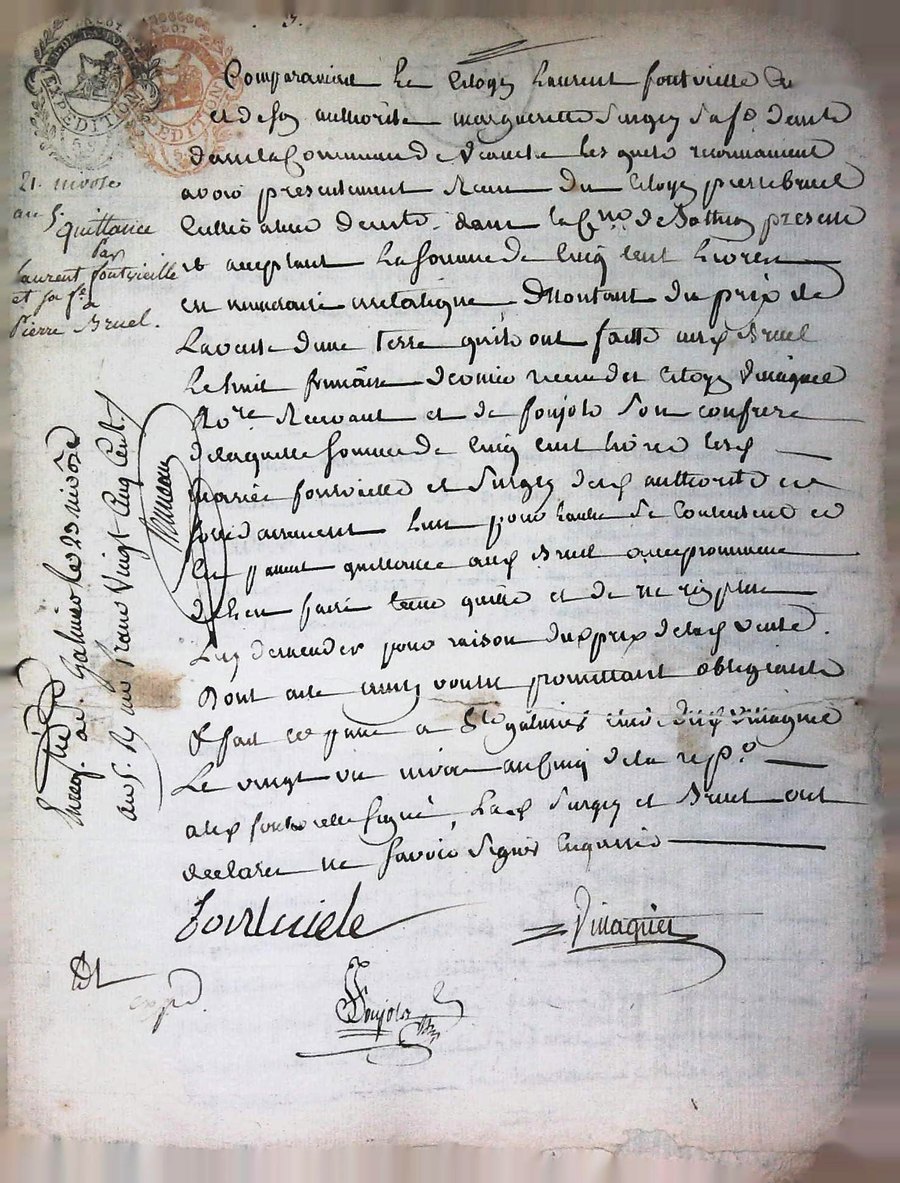 EXPEDITION
EXPEDITION
21. nivose
an 5.
Quittance
par
Laurent fontvieille
et sa fe. a
Pierre Bruel.
Comparaissent Le Citoyen Laurent fontvieille
et de son authorité marguerite surgey sa fe.
dans la Commune de Lesquels reconnaissent
avoir presentement Receu du Citoyen pierre bruel
Cultivateur dans la Cne. de present
et acceptant La Somme de Cinq Cent Livres
en numeraire metalique Montant du prix de
La vente d'une Terre qu'ils ont faitte aud. Bruel
Le huit frimaire dernier receu des Citoyen Vinagnier
Nore. Recevant et de foujols son confrere
de laquelle somme de Cinq Cent livres Lesd.
mariés fontvieille et surgey de lad. authorité et
solidairement L'un pour l'autre se Contentent et
En quittance aud. Bruel avec promesse
de L'en faire tenir quitte et de ne rien plus
Luy demander pour raison dud. prix de lad. vente.
Dont acte promettant obligeants
fait et passé a St. galmier dud. Vinagnier
Le vingt un nivose an Cinq de la rep.
a led. fontvieille signé, Lad. surgey et Bruel ont
declaré ne savoir signer Enquis
fontvieille
Vinagnier
foujols
expd.
Enreg. a Galmier le 23 nivose
an 5. R un franc Vingt Cinq Cent.